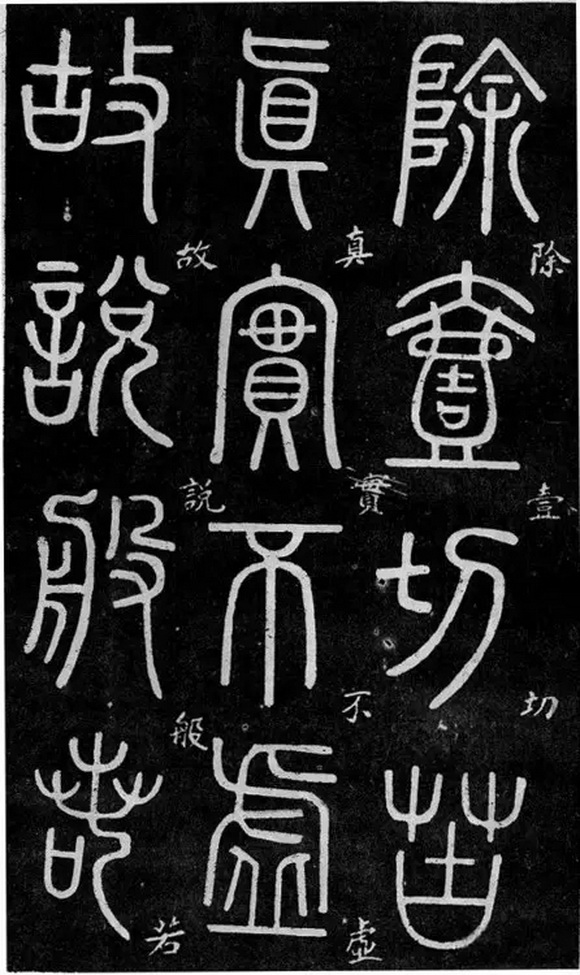 除壹切苦
除壹切
眞實不虛
真實不虚
故說般若
故説般若